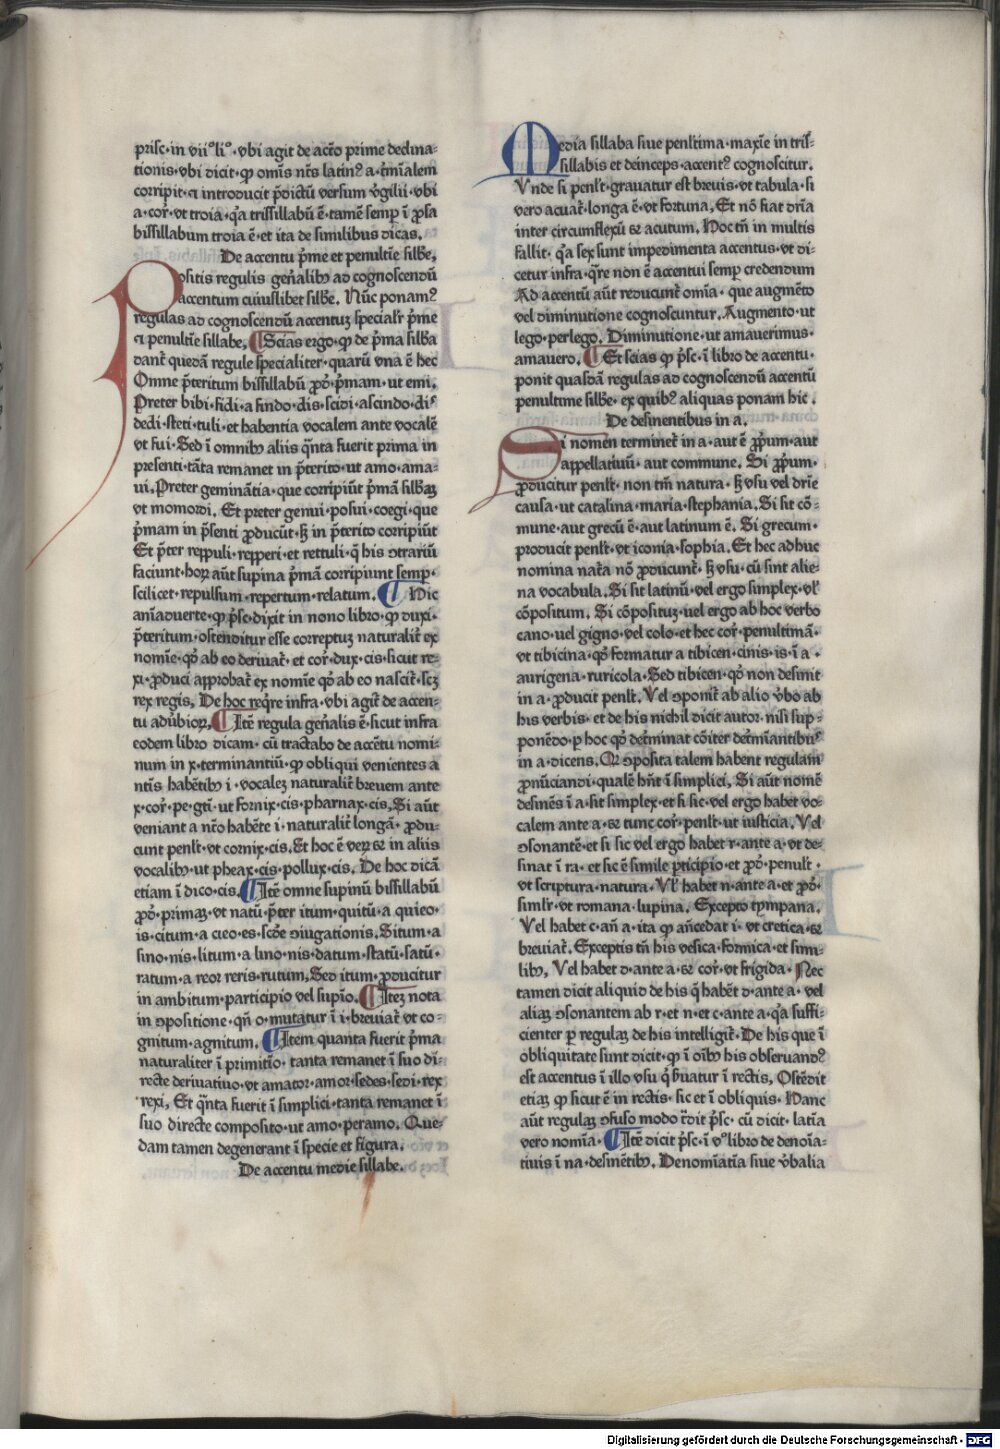 prisc·in vii°li°·vbi agit de accto prime declina⸗
tionis·vbi dicit·ꝙ omīs nr̄s latinꝰ a·t̄mīalem
corripit·⁊ introducit p̄dictū versum v̓gilii·vbi
a·cor̄·vt troia·qa trissillabū ē·tamē semp̄ ī ꝓsa
bissillabum troia ē·et ita de similibus dicas.
De accentu p̄me et penultīe sillbe.
Positis regulis gen̄alibꝫ ad cognoscendū
accentum cuiuslibet sillbe. Nūc ponamꝰ
regulas ad cognoscendū accentuꝫ specialr̄ p̄me
⁊ penultīe sillabe. ¶Scias ergo·ꝙ de p̄ma sillba
dant̄ quedā regule specialiter·quarū vna ē hec
Omne p̄teritum bissillabū ꝓd̓·p̄mam·ut emi.
Preter bibi·fidi·a findo·dis·scidi·ascindo·diˢ
dedi·steti·tuli·et habentia vocalem ante vocalē
vt fui·Sed ī omnibꝫ aliis qn̄ta fuerit prima in
presenti·tāta remanet in p̄terito·ut amo·ama⸗
ui. Preter geminātia·que corripiūt p̄mā sillbaꝫ
vt momordi. Et preter genui·posui·coegi·que
p̄mam in p̄senti ꝓducūt·sꝫ in p̄terito corripiūt
Et p̄ter reppuli·repperi·et rettuli·q̄ his ↄtrariū
faciunt·hoꝝ aūt supina p̄mā corripiunt semp̄·
scilicet·repulsum·repertum·relatum. ¶ Hic
anīaduerte·ꝙ p̄sc·dixit in nono libro·ꝙ duxi·
p̄teritum·ostenditur esse correptuꝫ naturalit̄ ex
nomīe·qd̓ ab eo deriuat̄·et cor̄·dux·cis·sicut re⸗
xi·ꝓduci approbat̄ ex nomīe qd̓ ab eo nascit̄·scꝫ
rex regis. De hoc req̄re infra·vbi agit̄ de accen⸗
tu adu̓bioꝝ. ¶Itē regula gen̄alis ē·sicut infra
eodem libro dicam·cū tractabo de accētu nomi⸗
num in x·terminantiū·ꝙ obliqui venientes a
nt̄is habētibꝫ i·vocaleꝫ naturalit̄ breuem ante
x·cor̄·pe·gti·ut fornix·cis·pharnax·cis. Si aūt
veniant a nt̄o habēte i·naturalit̄ longā·ꝓdu⸗
cunt penlt̄·vt cornix·cis. Et hoc ē veꝝ ⁊ in aliis
vocalibꝫ·ut pheax·cis·pollux·cis. De hoc dicā
etiam ī dico·cis. ¶Itē omne supinū bissillabū
ꝓd̓·primaꝫ·vt natū·p̄ter itum·quitū·a quieo·
is·citum·a cieo·es·scd̄e ↄiugationis. Situm·a
sino·nis·litum·a lino·nis·datum·statū·satū·
ratum·a reor reris·rutum. Sed itum·ꝓducitur
in ambitum·participio vel supīo. ¶Iteꝫ nota
in ↄpositione·qn̄ o·mutatur ī i·breuiat̄ vt co⸗
gnitum·agnitum. ¶Item quanta fuerit p̄ma
naturaliter ī primitīo·tanta remanet ī suo di⸗
recte deriuatiuo·vt amator·amor·sedes·sedi·rex
rexi. Et qn̄ta fuerit ī simplici·tanta remanet ī
suo directe composito·ut amo·peramo. Que⸗
dam tamen degenerant ī specie et figura.
De accentu medie sillabe.
Media sillaba siue penltima·maxīe in tris⸗
sillabis et deinceps·accentꝰ cognoscitur.
Vnde si penlt̄·grauatur est breuis·vt tabula·si
vero acuat̄·longa ē·vt fortuna. Et nō fiat dr̄ia
inter circumflexū ⁊ acutum. Hoc tn̄ in multis
fallit·qa sex sunt impedimenta accentus·vt di⸗
cetur infra·qr̄e non ē accentui semp̄ credendum
Ad accentū aūt reducunt̄ omīa·que augmēto
vel diminutione cognoscuntur. Augmento·ut
lego·perlego. Diminutione·ut amauerimus·
amauero. ¶ Et scias ꝙ p̄sc·ī libro de accentu·
ponit quasdā regulas ad cognoscendū accentū
penultime sillbe·ex quibꝫ aliquas ponam hic.
De desinentibus in a.
Si nomen terminet̄ in a·aut ē ꝓpum·aut
appellatiuū·aut commune. Si ꝓpum·
ꝓducitur penlt̄·non tm̄ natura·sꝫ vsu vel dr̄ie
causa·ut catalina·maria·stephania. Si sit cō⸗
mune·aut grecū ē·aut latinum ē. Si grecum·
producit penlt̄·vt iconia·sophia. Et hec adhuc
nomina nat̄a nō ꝓducunt̄·sꝫ vsu·cū sint alie⸗
na vocabula. Si sit latinū·vel ergo simplex·vl̓
cōpositum. Si cōposituꝫ·uel ergo ab hoc verbo
cano·uel gigno·vel colo·et hec cor̄·penultimā·
vt tibicina·qd̓ formatur a tibicen·cinis·is·ī a·
aurigena·ruricola. Sed tibicen·qd̓ non desinit
in a·ꝓducit penlt̄. Vel ↄponit̄ ab alio v̓bo ab
his verbis·et de his nichil dicit autor·nisi sup⸗
ponēdo·p hoc qd̓ det̄minat cōiter det̄mīantibuˢ
in a·dicens. Qr ↄposita talem habent regulam
ꝓnūciandi·qualē hn̄t ī simplici. Si aūt nomē
desinēs ī a·sit simplex·et si sic·vel ergo habet vo⸗
calem ante a·⁊ tunc cor̄·penlt̄·ut iusticia. Vel
ↄsonantē·et si sic vel ergo habet r·ante a·vt de⸗
sinat ī ra·et sic ē simile pticipio·et ꝓd̓·penult̄·
vt scriptura·natura. Vl̓ habet n·ante a·et ꝓd̓·
simlr̄·vt romana·lupina. Excepto tympana.
Vel habet c·an̄ a·ita ꝙ an̄cedat i·vt cretica·⁊
breuiat̄. Exceptis tn̄ his vesica·formica·et simi⸗
libꝫ. Vel habet d·ante a·⁊ cor̄·vt frigida. Nec
tamen dicit aliquid de his q̄ habēt d·ante a·vel
aliaꝫ ↄsonantem ab r·et n·et c·ante a·qa suffi⸗
cienter p regulaꝫ de his intelligit̄. De his que ī
obliquitate sunt dicit·ꝙ ī oībꝫ his obseruandꝰ
est accentus ī illo vsu q̓ s̓uatur ī rectis. Ostēdit
etiaꝫ ꝙ sicut ē in rectis·sic et ī obliquis. Hanc
aūt regulaꝫ ↄfuso modo t̄dit p̄sc·cū dicit·latīa
vero nomīa. ¶Itē dicit p̄sc·ī v°libro de denoīa⸗
tiuis ī na·desinētibꝫ. Denomīatīa siue v̓balia
Digitalisierung gefördert durch die Deutsche Forschungsgemeinschaft - DFG